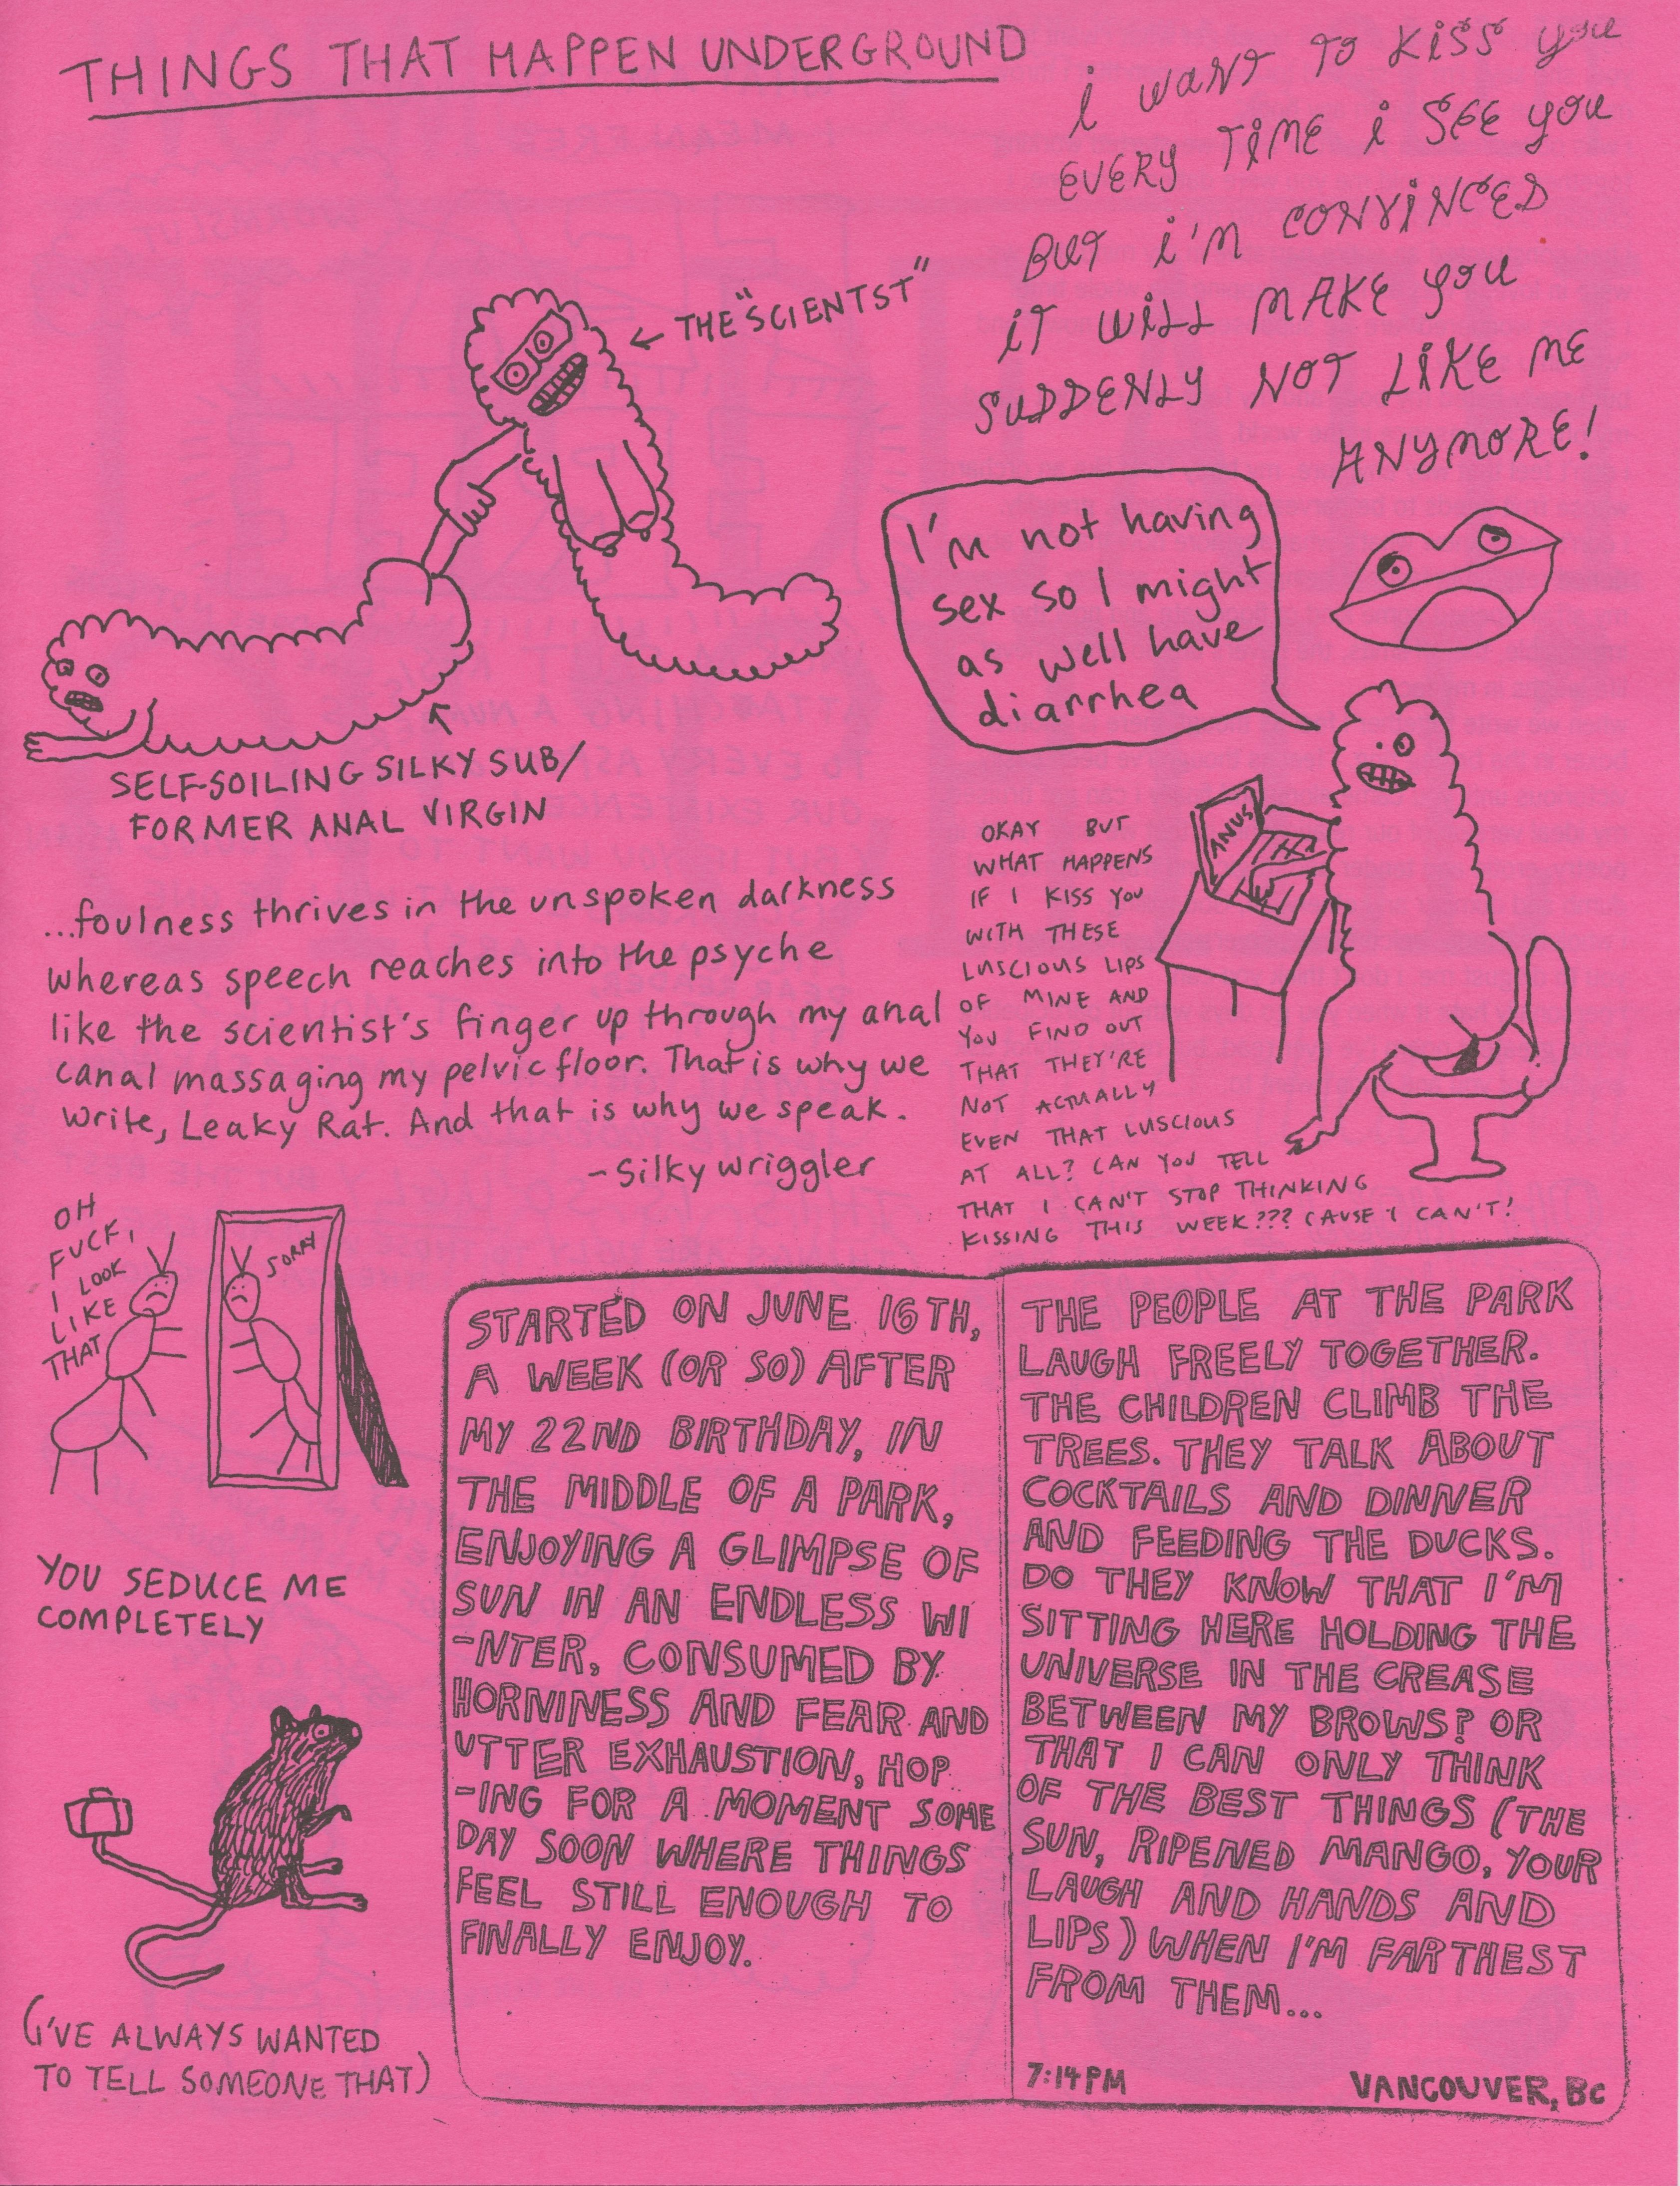 THINGS THAT HAPPEN UNDERGROUND
i WANT TO KiSS you
EVERY TiME i SEE you
BUT i'M CONViNCED
iT WiLL MAKE you
SUDDENLY NOT LiKE ME
ANYMORE!
← THE "SCIENTST"
I'm not having
sex so I might
as well have
diarrhea
SELF-SOILING SILKY SUB/
FORMER ANAL VIRGIN
ANUS
OKAY BUT
WHAT HAPPENS
IF I KISS YOU
WITH THESE
LUSCIOUS LIPS
OF MINE AND
YOU FIND OUT
THAT THEY'RE
NOT ACTUALLY
EVEN THAT LUSCIOUS
AT ALL? CAN YOU TELL
THAT I CAN'T STOP THINKING
KISSING THIS WEEK??? CAUSE I CAN'T!
...foulness thrives in the unspoken darkness
whereas speech reaches into the psyche
like the scientist's finger up through my anal
canal massaging my pelvic floor. That is why we
write, Leaky Rat. And that is why we speak.
-Silky wriggler
OH
FUCK,
I LOOK
LIKE
THAT
SORRY
YOU SEDUCE ME
COMPLETELY
(I'VE ALWAYS WANTED
TO TELL SOMEONE THAT)
STARTED ON JUNE 16TH,
A WEEK (OR SO) AFTER
MY 22ND BIRTHDAY, IN
THE MIDDLE OF A PARK,
ENJOYING A GLIMPSE OF
SUN IN AN ENDLESS WI
-NTER, CONSUMED BY
HORNINESS AND FEAR AND
UTTER EXHAUSTION, HOP
-ING FOR A MOMENT SOME
DAY SOON WHERE THINGS
FEEL STILL ENOUGH TO
FINALLY ENJOY.
THE PEOPLE AT THE PARK
LAUGH FREELY TOGETHER.
THE CHILDREN CLIMB THE
TREES. THEY TALK ABOUT
COCKTAILS AND DINNER
AND FEEDING THE DUCKS.
DO THEY KNOW THAT I'M
SITTING HERE HOLDING THE
UNIVERSE IN THE CREASE
BETWEEN MY BROWS? OR
THAT I CAN ONLY THINK
OF THE BEST THINGS (THE
SUN, RIPENED MANGO, YOUR
LAUGH AND HANDS AND
LIPS) WHEN I'M FARTHEST
FROM THEM...
7:14PM
VANCOUVER, BC